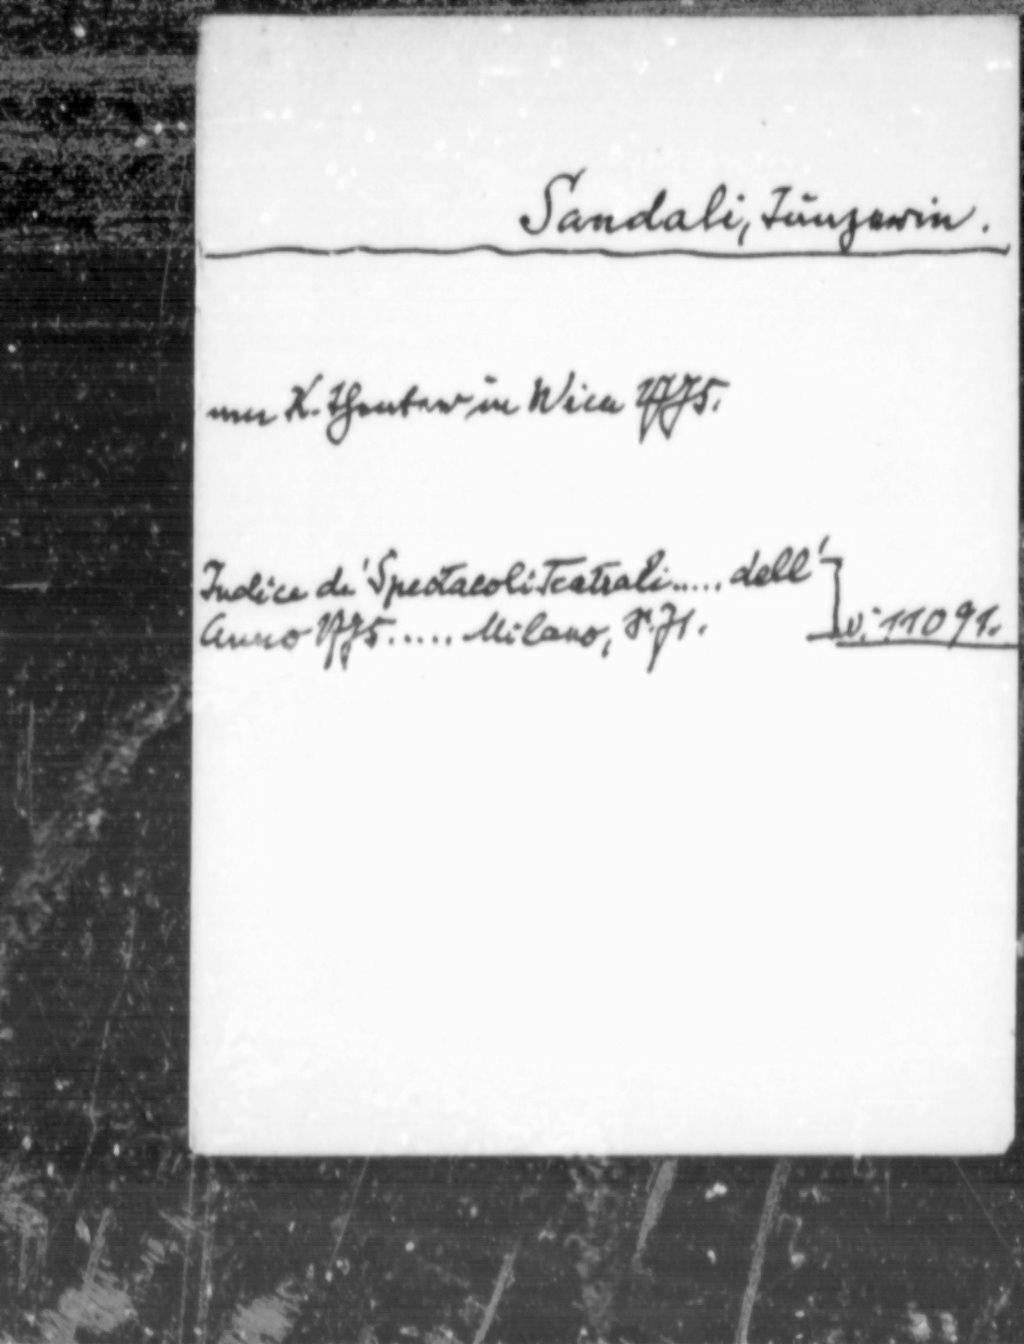 Sandali, Tänzerin.
am K. Theater in Wien 1775.
Indice de' Spectacoli Teatrali..... dell'
Anno 1775..... Milano, S. 71.
v: 11091.